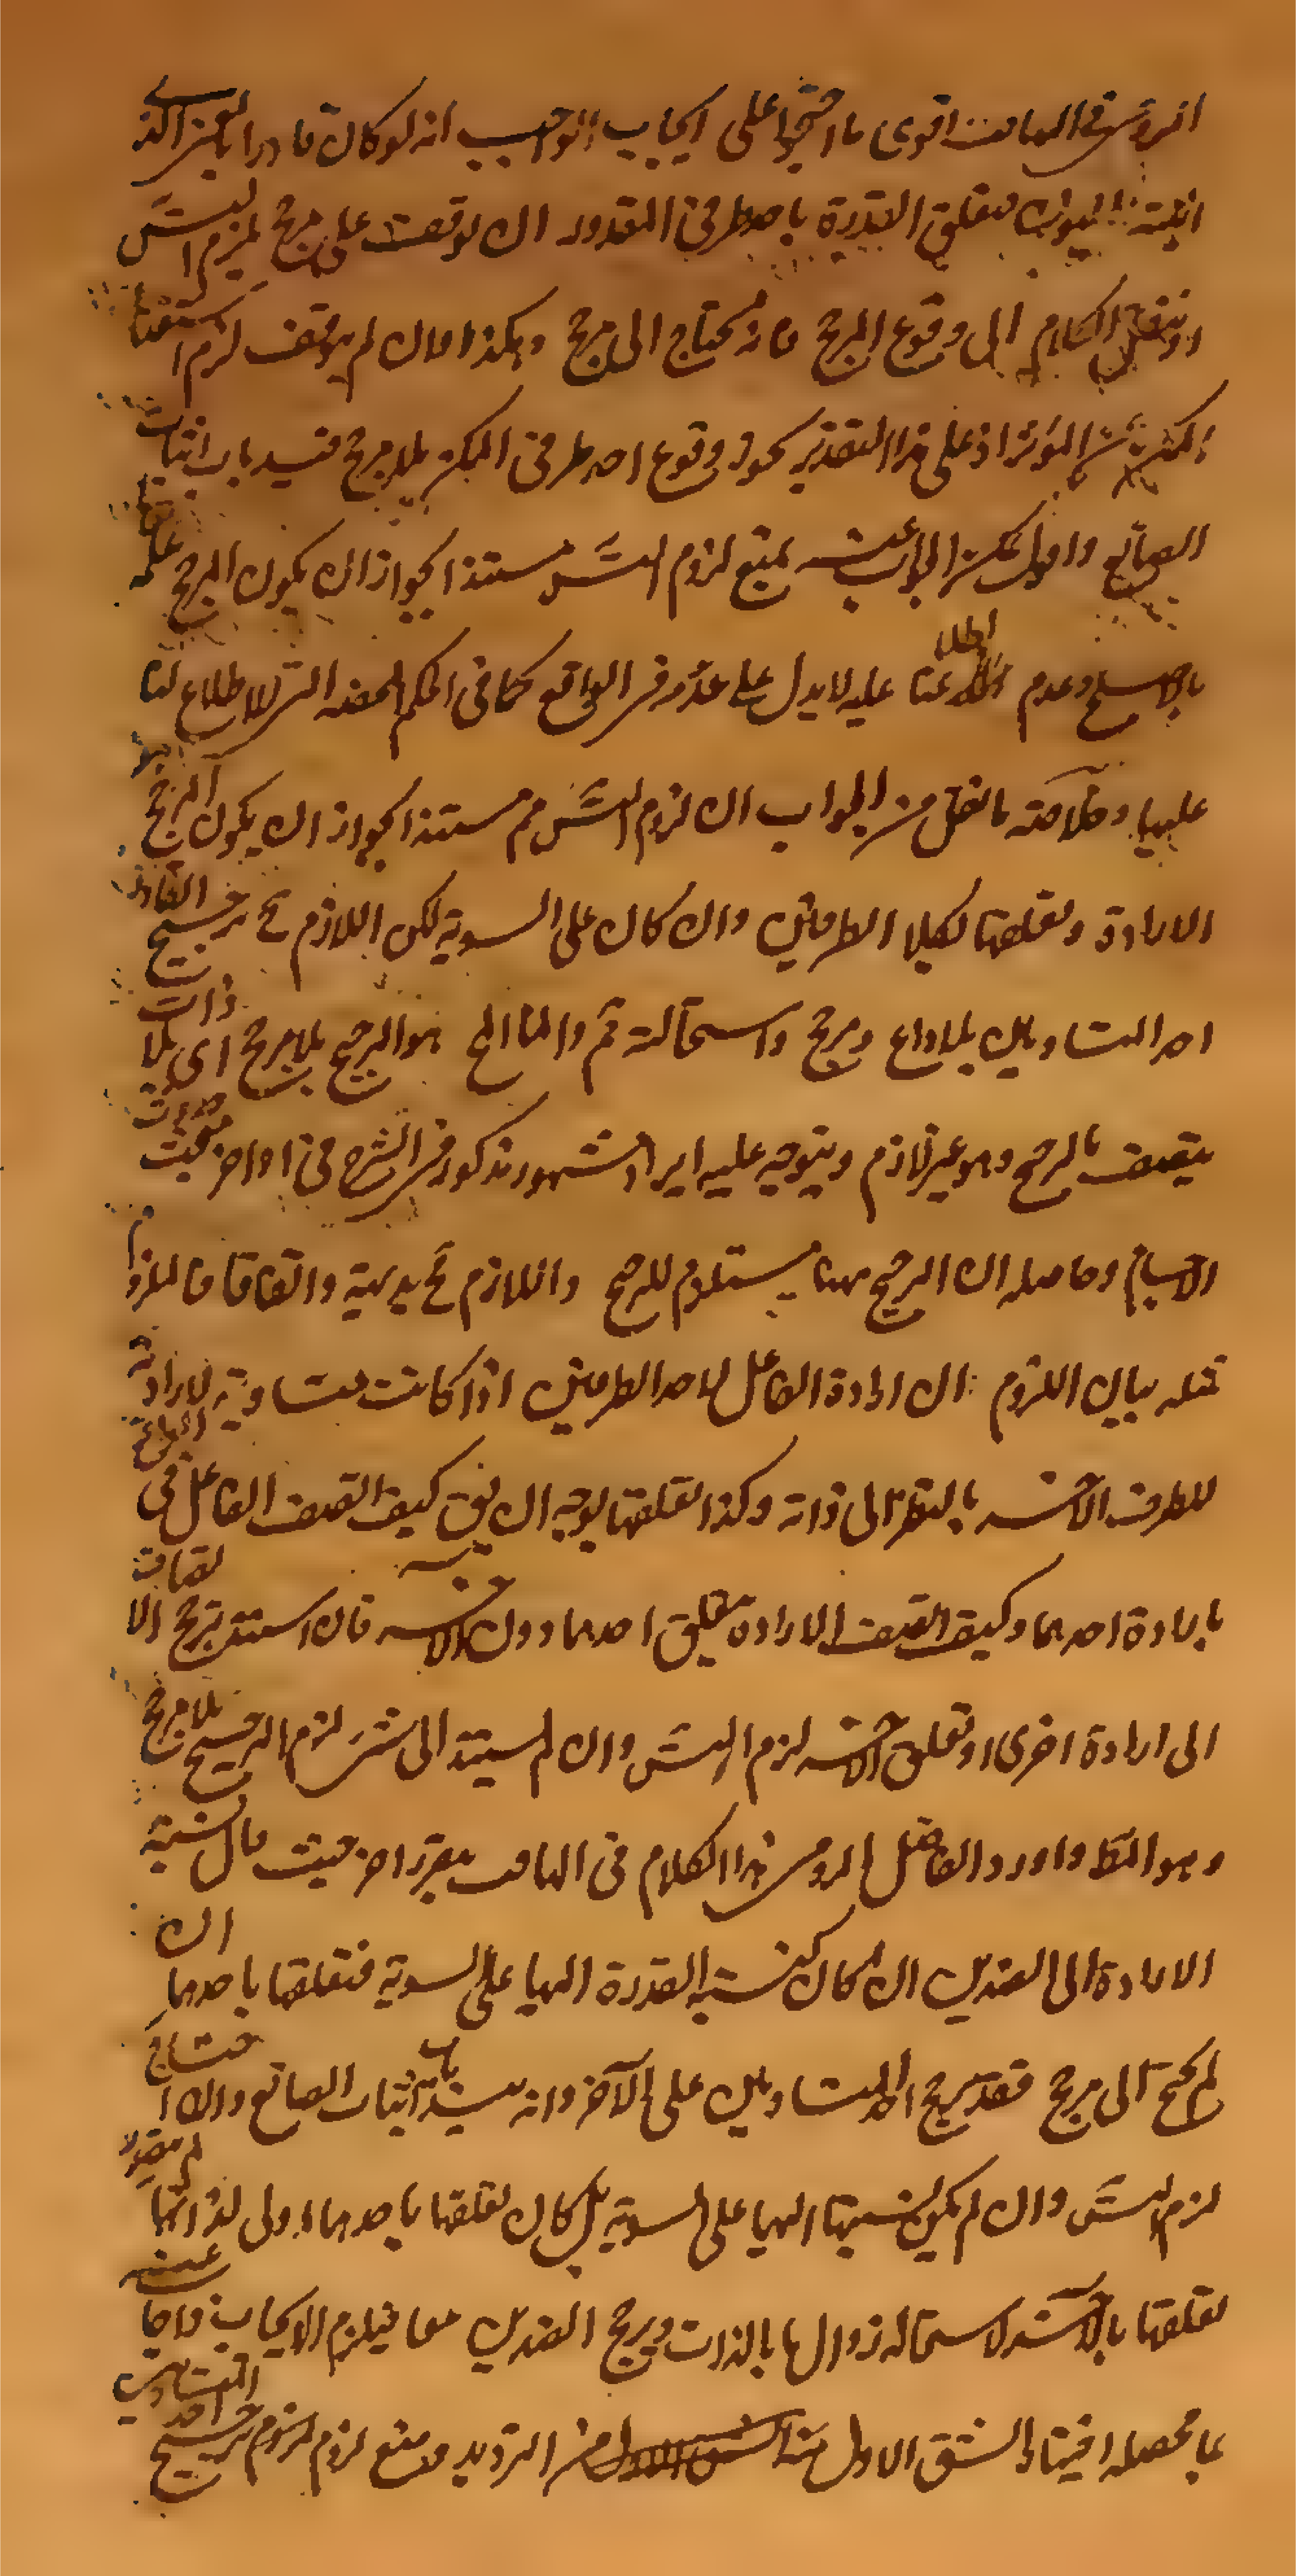 اقوى ما احتجوا على ايجاب الواجب انه لو كان قادرا
تعلق القدرة باحد طرفى المقدور ان توقفت على مرجح لزم التس
الكلام الى وقوع المرجح فانه محتاج الى مرجح وهكذا وان لم يتوقف لزم استغناء
المؤثر اذ على هذا التقدير يجوز وقوع احد طرفى الممكن بلا مرجح فيسد باب اثبات
الصانع واقول يمكن الجواب عنه بمنع لزوم التس مستندا بجواز ان يكون المرجح علمه
بالاصلح وعدم اطلاعنا عليه لا يدل على عدمه فى الواقع كما فى الحكم الخفية التى لا اطلاع لنا
عليها وخلاصة ما نقل من الجواب ان لزوم التس مم مستندا بجواز ان يكون المرجح هو
الارادة وتعلقها لكلا الطرفين وان كان على السوية لكن اللازم ح ترجيح القادر
احد المتساويين بلا داع ومرجح واستحالته مم وانما المح هو الترجح بلا مرجح اى بلا ذات
يتصف بالمرجح وهو غير لازم ويتوجه عليه ايراد مشهور مذكور فى الشرح فى اواخر مبحث
الاجسام وحاصله ان الترجيح ههنا مستلزم للترجح واللازم مح بديهة واتفاقا فالملزوم
مثله بيان اللزوم ان ارادة الفاعل لاحد الطرفين اذا كانت متساوية لارادته
للطرف الآخر بالنظر الى ذاته وكذا تعلقها يوجه ان يق كيف اتصف الفاعل فى
بارادة احدهما وكيف اتصف الارادة بتعلق احدهما دون الآخر فان استند ترجح الاتصاف
الى ارادة اخرى او تعلق آخر لزم التس وان لم يستند الى شئ لزم الترجيح بلا مرجح
وهو المط واورد الفاضل الرومى هذا الكلام فى الهامش بتقرير آخر حيث قال نسبة
الارادة الى الضدين ان كان كنسبة القدرة اليها على السوية فتعلقها باحدهما ان
لم يحتج الى مرجح فقد ترجح احد المتساويين على الآخر وانه يسد باب اثبات الصانع وان احتاج
لزم التس وان لم يكن نسبتها اليها على السوية بل كان تعلقها باحدهما اولى لذاتها لم يتصور
تعلقها بالآخر لاستحالة زوال ما بالذات ويرجح الضدين معا فيلزم الايجاب فاجاب عنه
بما محصله اختيار الشق الاول من الترديد ومنع لزوم ترجيح احد المتساويين